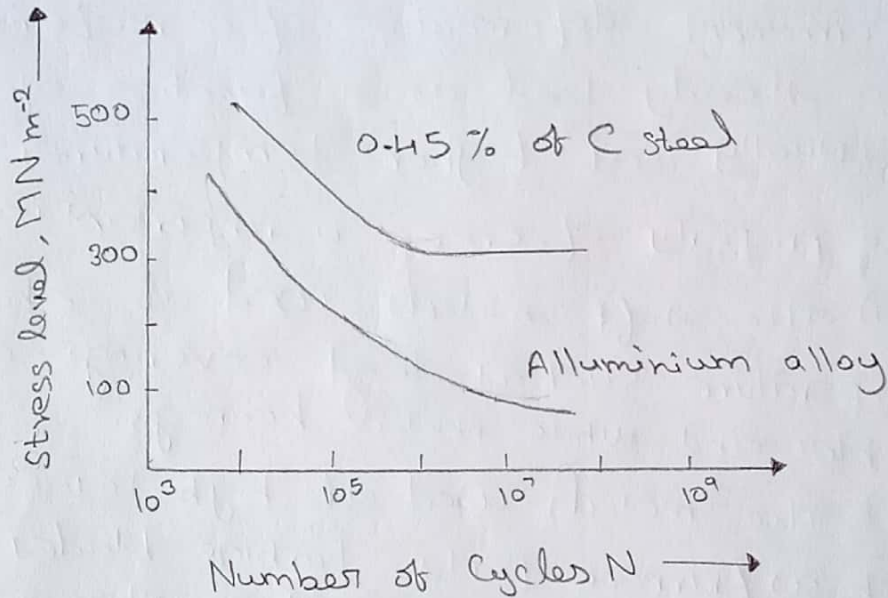 Stress level, MN m⁻²
500
0.45 % of C steel
300
Alluminium alloy
100
10³ 10⁵ 10⁷ 10⁹
Number of Cycles N